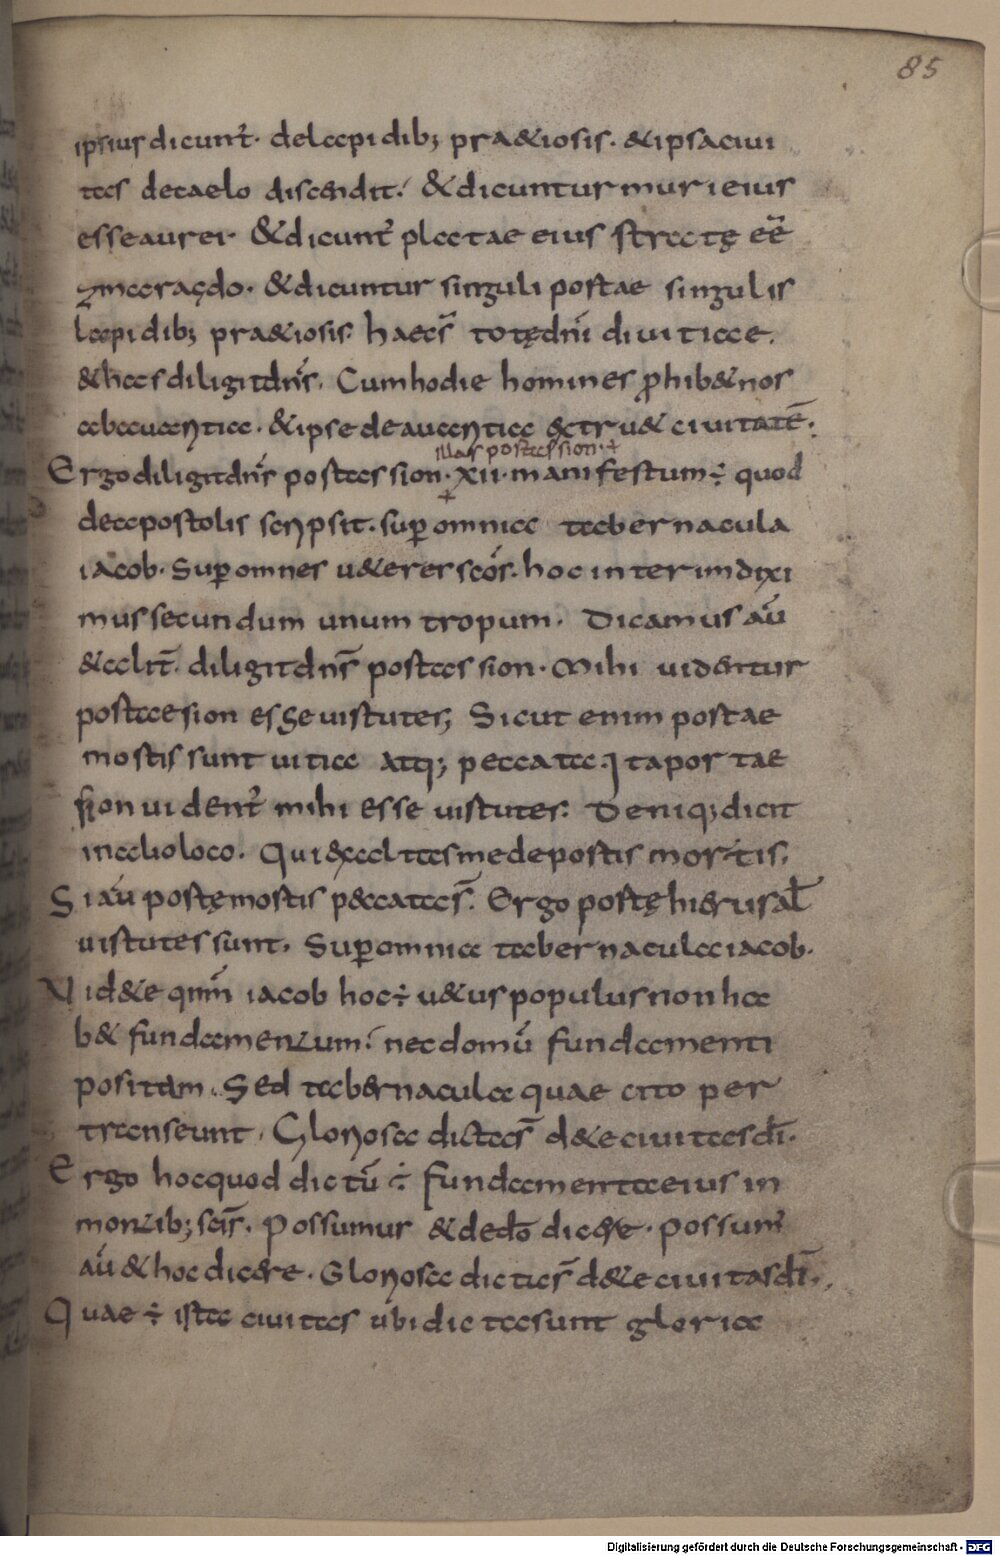 85
ipsius dicunt̄. delapidib; pra&iosis. &ipsaciui
tas decaelo discendit. &dicuntur muri eius
esse aurei. &dicunt̄ plateae eius stratę eē
zmaragdo. &dicuntur singuli portae singulis
lapidib; pra&iosis. haec s̄ totę dn̄i diuitiae.
&has diligit dn̄s. Cum hodie homines ꝓhib& nos
ab auaritia. &ipse de auaritia extru& ciuitatē.
illas portas sion
Ergo diligit dn̄s portas sion. xii. manifestum ÷ quod
deapostolis scripsit. sup omnia tabernacula
iacob. Sup omnes u&eres scōs. hoc interim dixi
mus secundum unum tropum. Dicamus aū
&alit̄. diligit dn̄s portas sion. Mihi uidentur
portae sion esse uirtutes; Sicut enim portae
mortis sunt uitia atq; peccata. ita portae
sion uident̄ mihi esse uirtutes. Deniq; dicit
in alio loco. Qui exaltas me de portis mortis.
Si aū portę mortis peccata s̄. Ergo portę hierusal̄
uirtutes sunt. Sup omnia tabernacula iacob.
Uid&e qm̄ iacob hoc ÷ u&us populus non ha
b& fundamentum. nec domū fundamenti
positam. Sed tabernacula quae cito per
transeunt. Gloriosa dicta s̄ de te ciuitas dī.
Ergo hoc quod dictū ÷ fundamenta eius in
montib; sc̄is. Possumus & de dō dicere. possum̄
aū & hoc dicere. Gloriosa dicta s̄ de te ciuitas dī.
Quae ÷ ista ciuitas ubi dicta sunt gloria
Digitalisierung gefördert durch die Deutsche Forschungsgemeinschaft - DFG